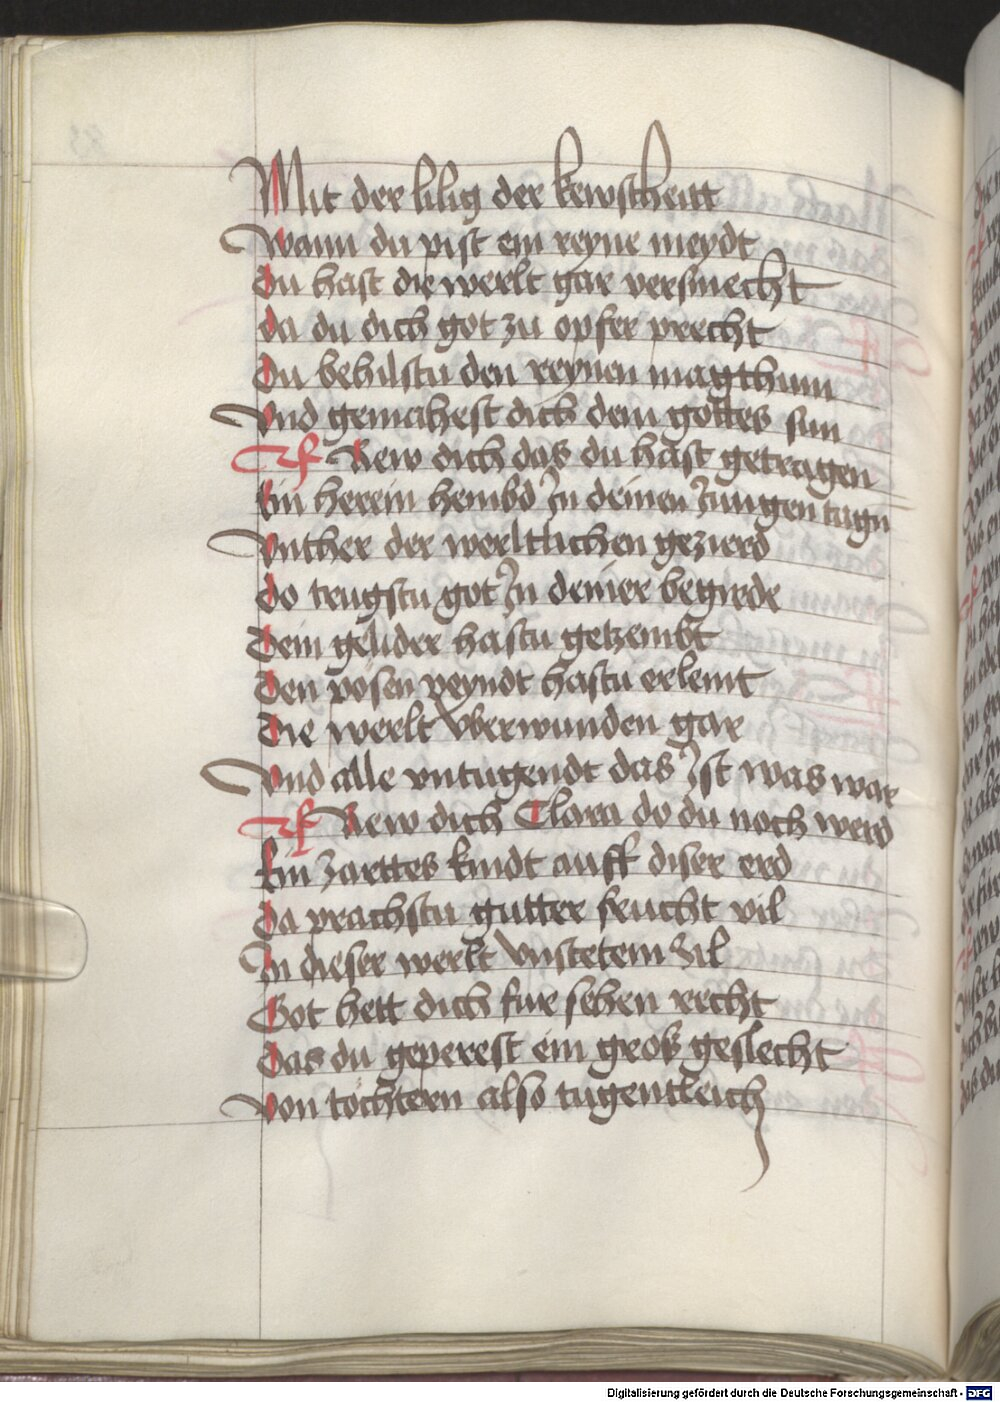 Mit der lilig der kewscheitt
Wann du pist ein reyne meydt
Du hast die werlt gar versmecht
Da du dich got zu opfer precht
Du behilstu den reynen magthum
Vnd gemahest dich dem gottes sun
Frew dich das du hast getragen
Ein herein hembd Jn deinen Jungen tagn
Vnther der werltlichen gezierd
do trugstu got Jn deiner begirde
Dein gelider hastu getzembt
Den posen veyndt hastu erlemt
Die werlt vberwunden gar
Vnd alle vntugendt das Jst was war
Frew dich Clara do du noch werd
Ein zarttes kindt auff diser erd
Da prachstu gutter frucht vil
Jn dieser werlt vnstetem zil
Got hett dich fur sehen recht
Das du geperest ein groß geslecht
Von tochtern also tugentleich
Digitalisierung gefördert durch die Deutsche Forschungsgemeinschaft - DFG